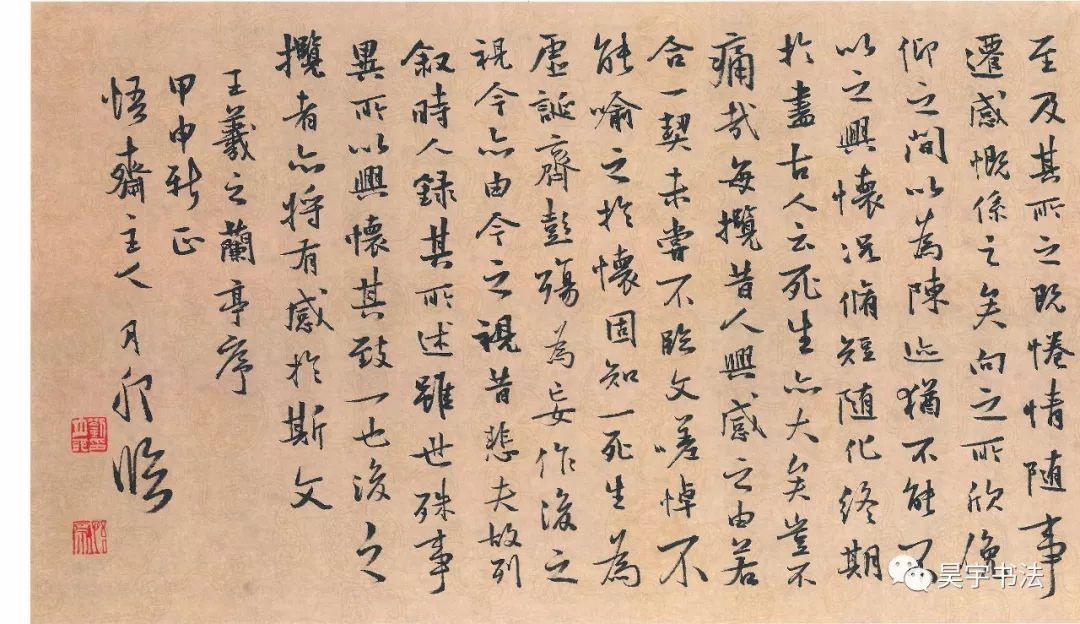 至及其所之既惓情随事
遷感慨係之矣向之所欣俛
仰之間以為陳迹猶不能不
以之興懷況脩短随化終期
於盡古人云死生亦大矣豈不
痛哉每攬昔人興感之由若
合一契未嘗不臨文嗟悼不
能喻之於懷固知一死生為
虛誕齊彭殤為妄作後之
視今亦由今之視昔悲夫故列
叙時人錄其所述雖世殊事
異所以興懷其致一也後之
攬者亦將有感於斯文
王羲之蘭亭序
甲申新正
悟齋主人 臨
昊字书法